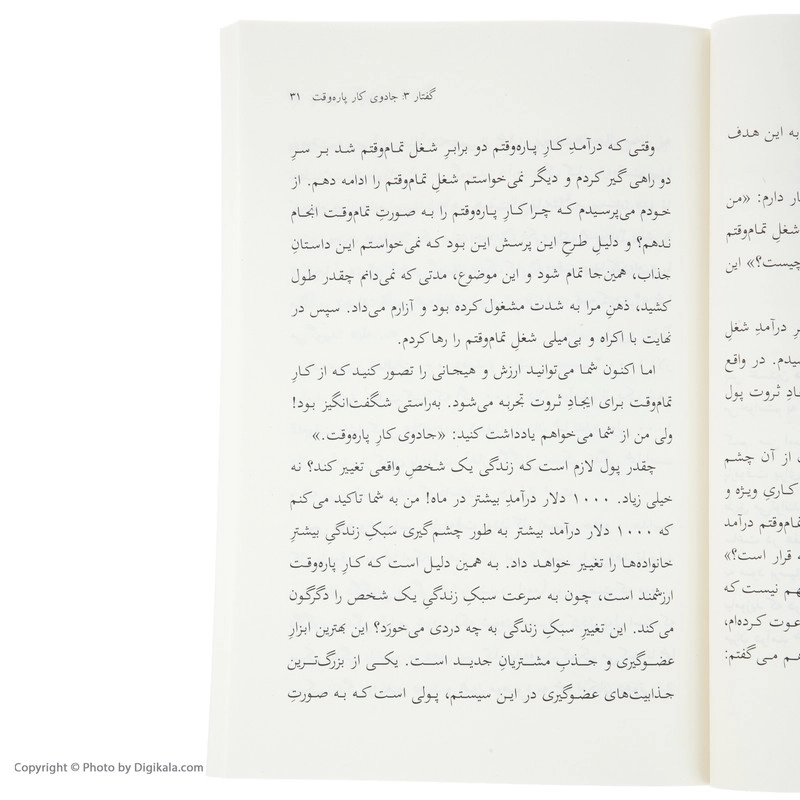 گفتار ۳: جادوی کار پاره‌وقت ۳۱
وقتی که درآمدِ کارِ پاره‌وقتم دو برابرِ شغل تمام‌وقتم شد بر سرِ
دو راهی گیر کردم و دیگر نمی‌خواستم شغلِ تمام‌وقتم را ادامه دهم. از
خودم می‌پرسیدم که چرا کارِ پاره‌وقتم را به صورتِ تمام‌وقت انجام
ندهم؟ و دلیلِ طرحِ این پرسش این بود که نمی‌خواستم این داستانِ
جذاب، همین‌جا تمام شود و این موضوع، مدتی که نمی‌دانم چقدر طول
کشید، ذهنِ مرا به شدت مشغول کرده بود و آزارم می‌داد. سپس در
نهایت با اکراه و بی‌میلی شغلِ تمام‌وقتم را رها کردم.
اما اکنون شما می‌توانید ارزش و هیجانی را تصور کنید که از کارِ
تمام‌وقت برای ایجادِ ثروت تجربه می‌شود. به‌راستی شگفت‌انگیز بود!
ولی من از شما می‌خواهم یادداشت کنید: «جادوی کارِ پاره‌وقت.»
چقدر پول لازم است که زندگی یک شخصِ واقعی تغییر کند؟ نه
خیلی زیاد. ۱۰۰۰ دلار درآمدِ بیشتر در ماه! من به شما تاکید می‌کنم
که ۱۰۰۰ دلار درآمد بیشتر به طور چشم‌گیری سَبکِ زندگیِ بیشترِ
خانواده‌ها را تغییر خواهد داد. به همین دلیل است که کارِ پاره‌وقت
ارزشمند است، چون به سرعت سبکِ زندگیِ یک شخص را دگرگون
می‌کند. این تغییرِ سبکِ زندگی به چه دردی می‌خورَد؟ این بهترین ابزارِ
عضوگیری و جذبِ مشتریانِ جدید است. یکی از بزرگ‌ترین
جذابیت‌های عضوگیری در این سیستم، پولی است که به صورتِ
به این هدف
دارم: «من
شغلِ تمام‌وقتم
چیست؟» این
درآمدِ شغلِ
در واقع
ثروت پول
از آن چشم
کاریِ ویژه و
درآمد
قرار است؟»
نیست که
می‌گفتم:
Copyright © Photo by Digikala.com